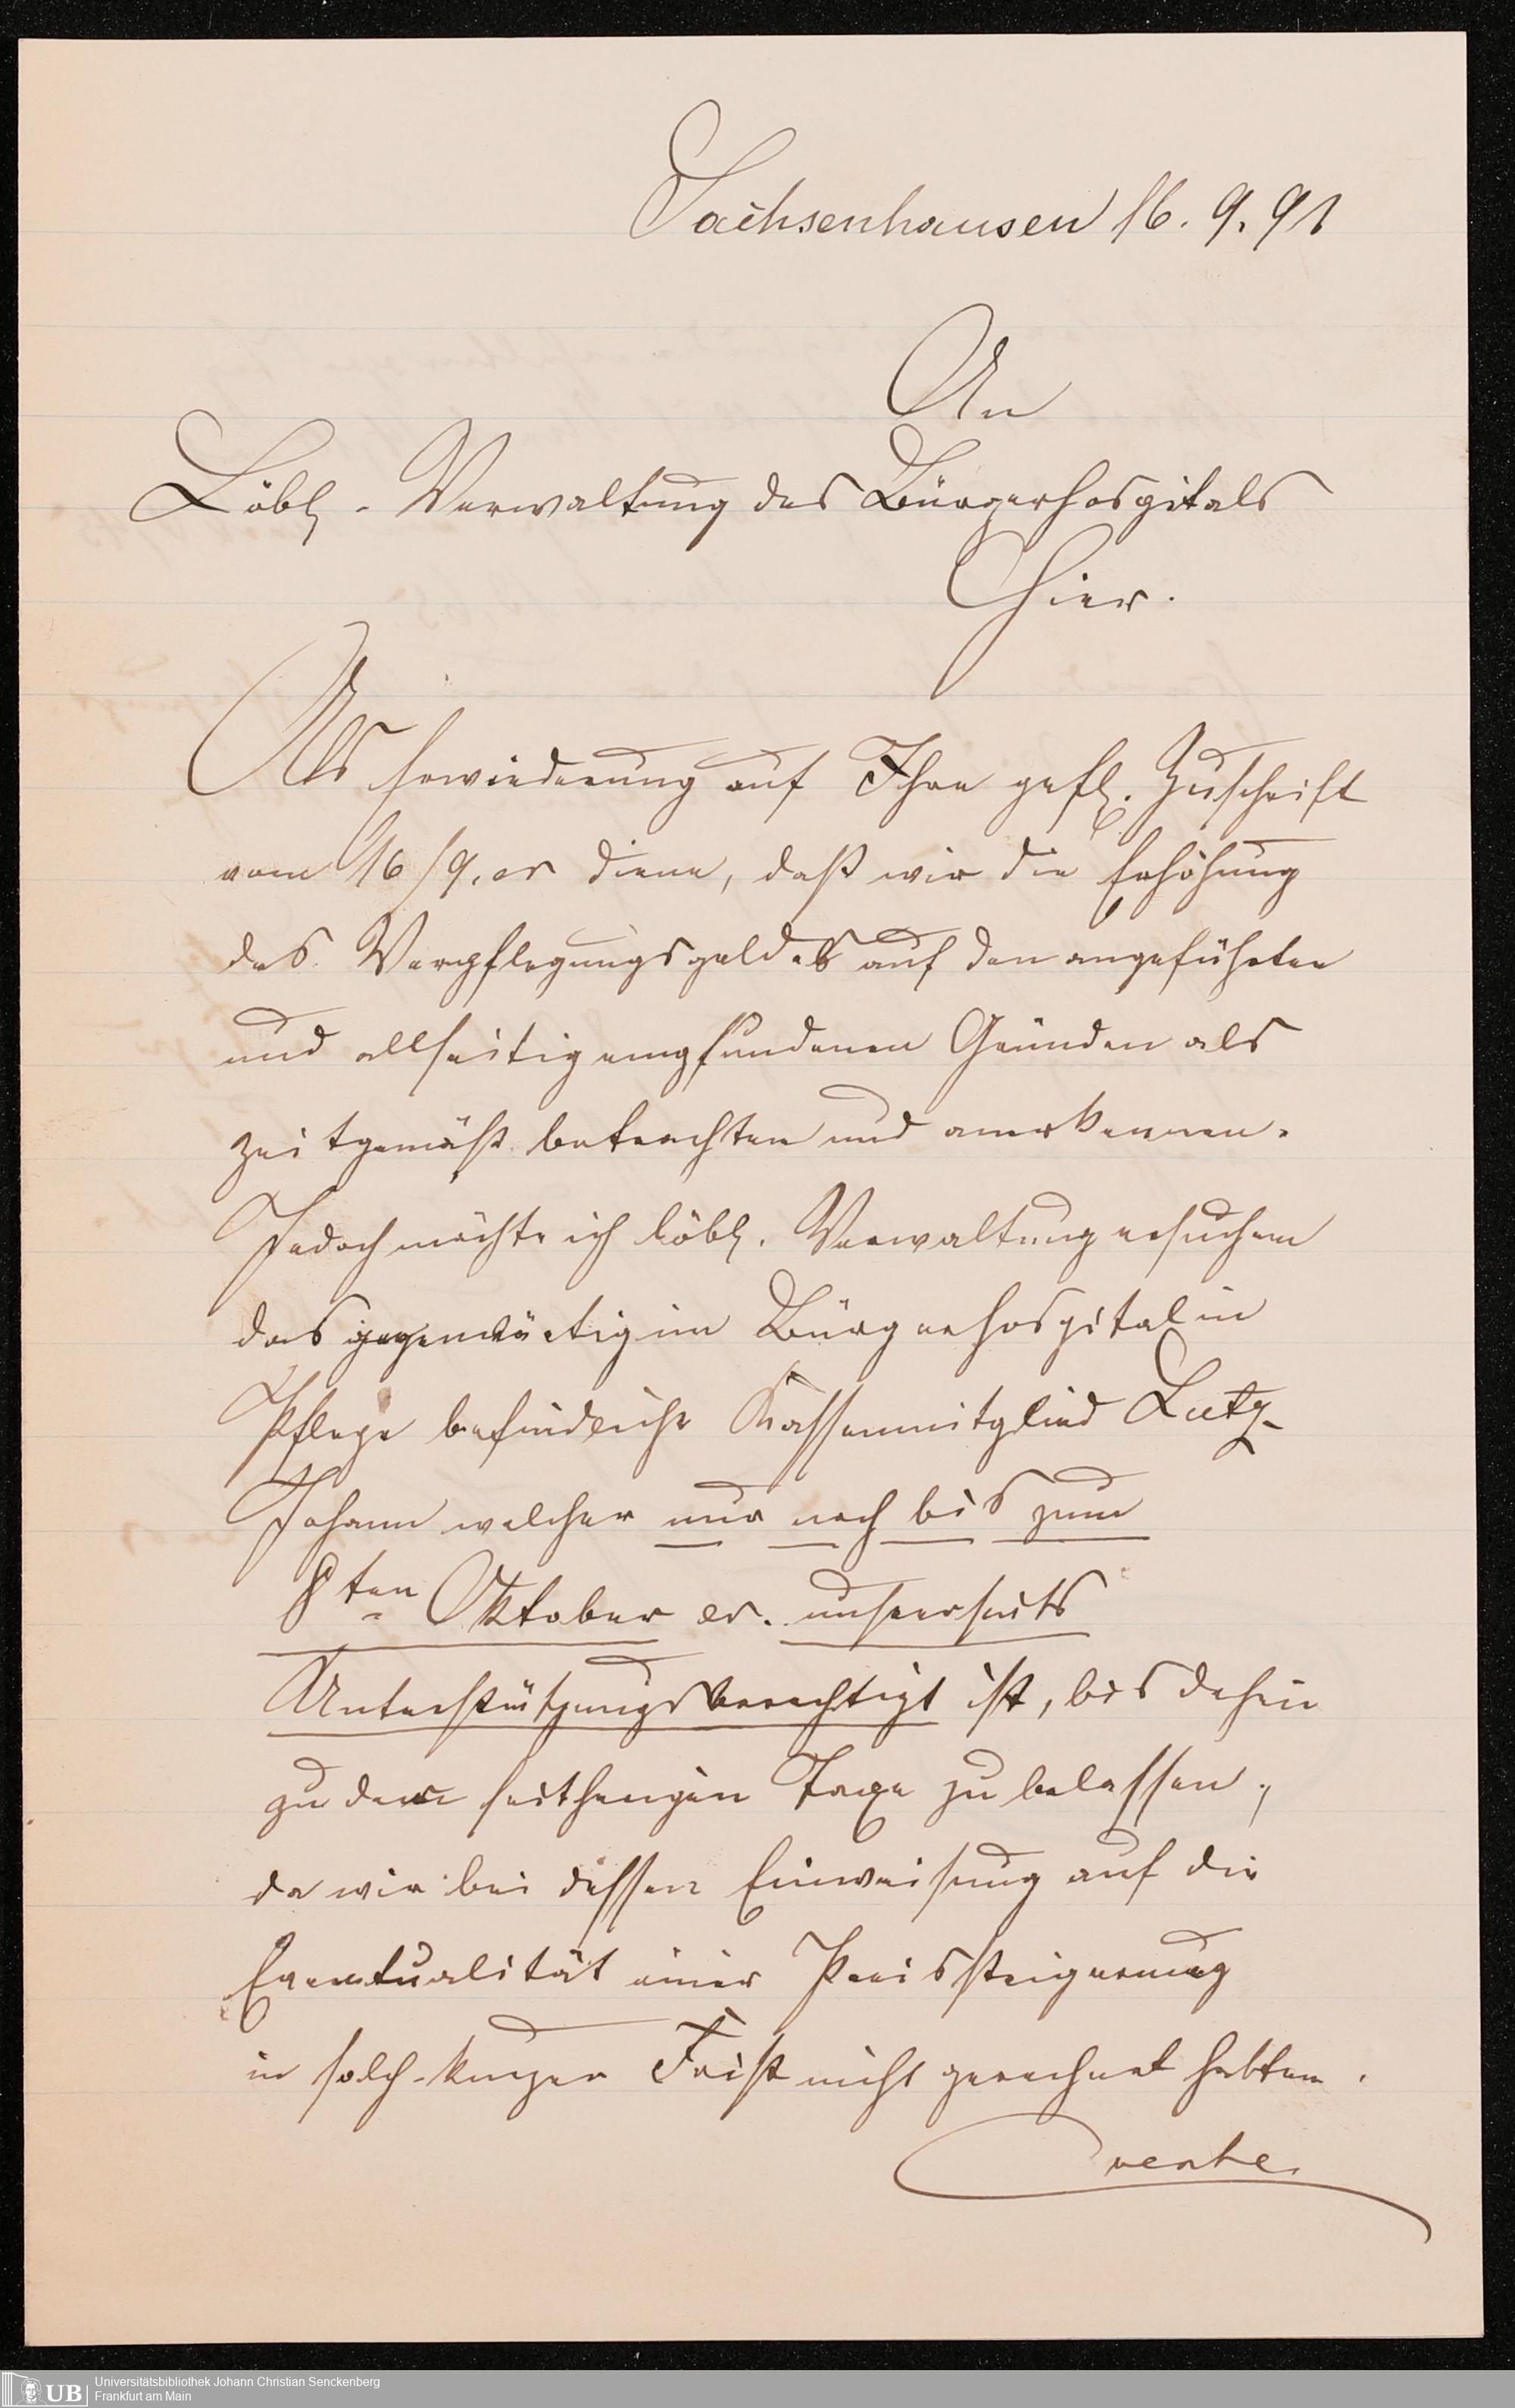 Sachsenhausen 16. 9. 91
An
Löbl. Verwaltung des Bürgerhospitals
Hier.
Als Erwiederung auf Ihre gefl. Zuschrift
vom 16/9. cr diene, daß wir die Erhöhung
des Verpflegungsgeldes auf den angeführten
und allseitig empfundenen Gründen als
zeitgemäß betrachten und anerkennen.
Jedoch möchte ich löbl. Verwaltung ersuchen
das gegenwärtig im Bürgerhospital in
Pflege befindliche Kassenmitglied Lutz
Johann welcher nur noch bis zum
8ten Oktober cr. unserseits
Unterstützungsberechtigt ist, bis dahin
zu der seitherigen Taxe zu belassen,
da wir bei dessen Einweisung auf die
Eventualität einer Preissteigerung
in solch kurzer Frist nicht gerechnet hatten.
Universitätsbibliothek Johann Christian Senckenberg
Frankfurt am Main
UB